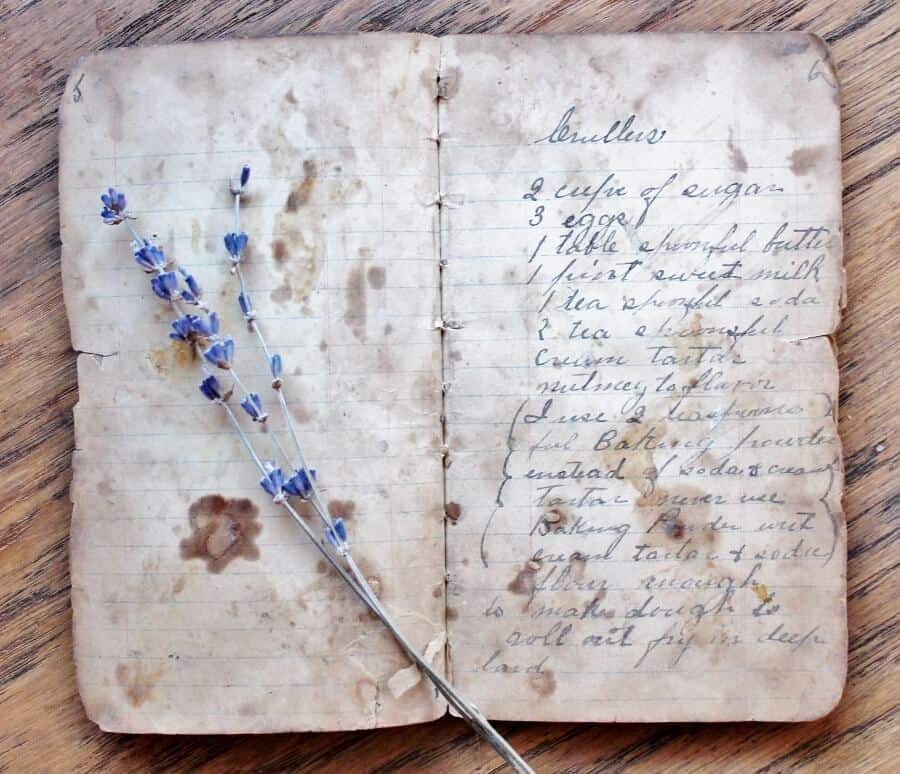 5
6
Crullers
2 cups of sugar
3 eggs
1 table spoonful butter
1 pint sweet milk
1 tea spoonful soda
2 tea spoonsful
cream tartar
nutmeg to flavor
(I use 2 teaspoons
ful Baking powder
instead of soda & cream
tartar never use
Baking Powder with
cream tartar & soda)
flour enough
to make dough to
roll out fry in deep
lard